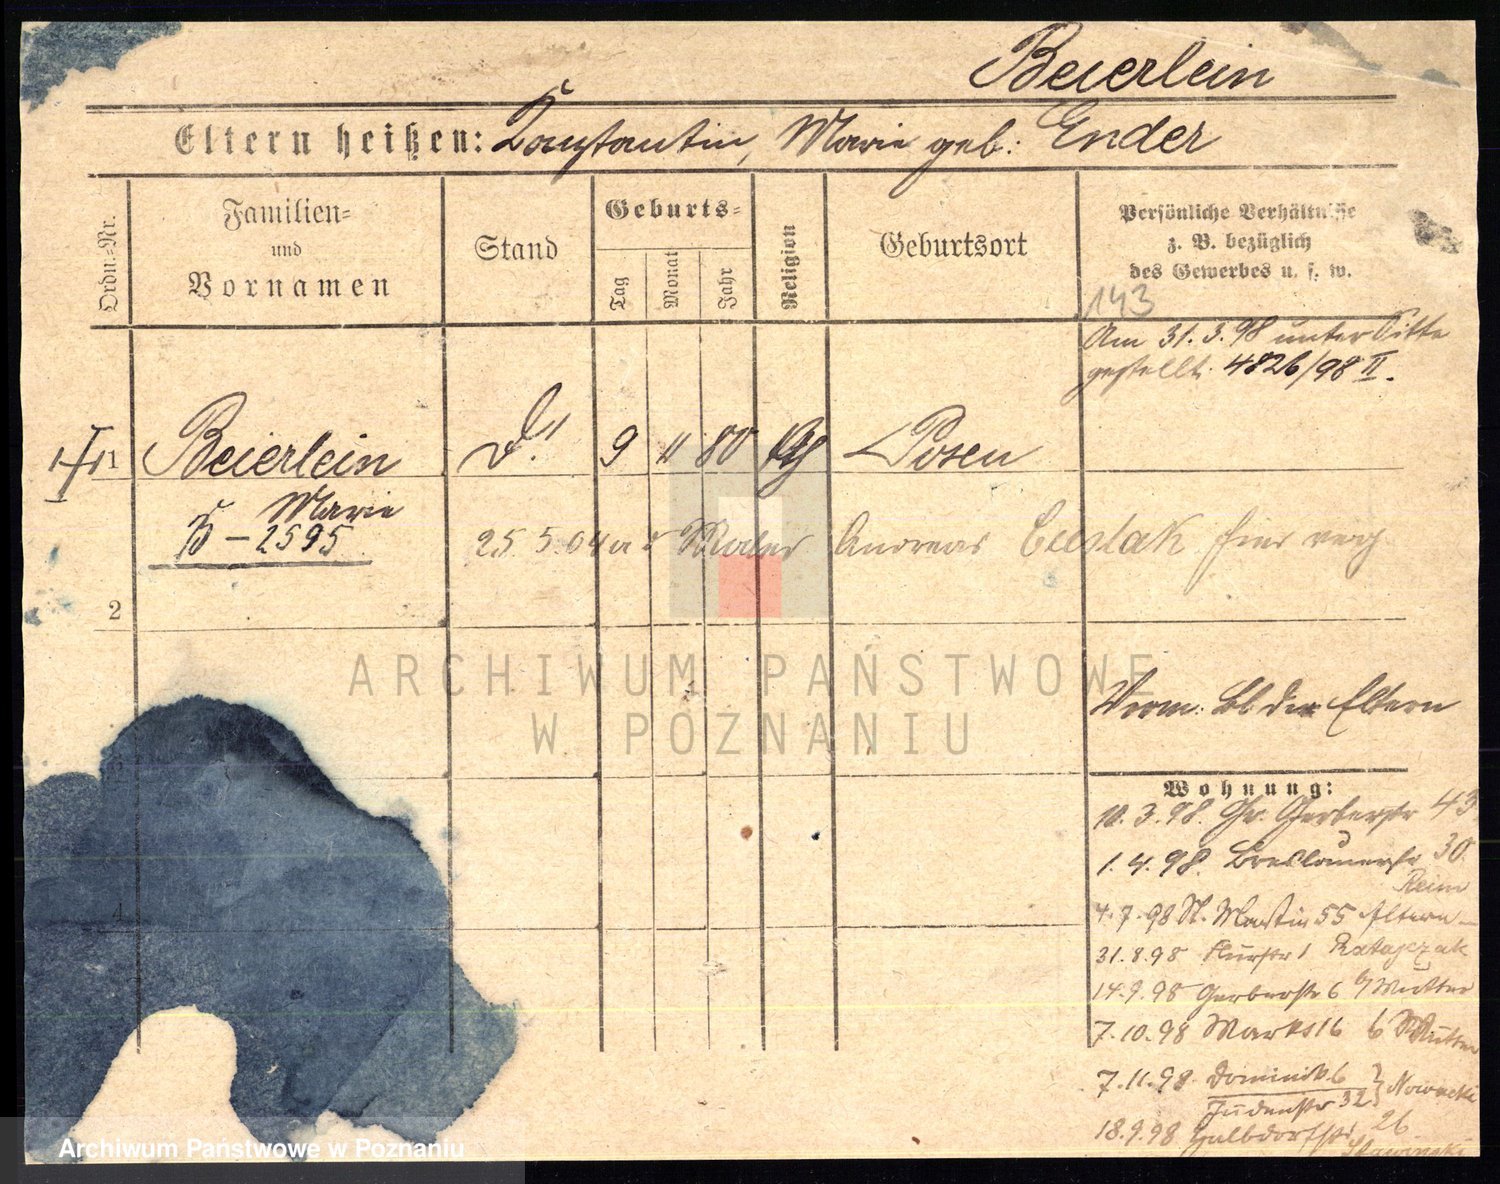 Beierlein
Eltern heißen: Konstantin, Marie geb: Ender
Ordn.-Nr.
Familien-
und
Vornamen
Stand
Geburts-
Tag
Monat
Jahr
Religion
Geburtsort
Persönliche Verhältnisse
z. B. bezüglich
des Gewerbes u. s. w.
143
Am 31. 3. 98 unter Sitte
gestellt. 4826/98 II.
1 Beierlein 9 11 80 Posen
Marie
B - 2595
25 5 04 Maler Andreas Cieslak
2
Verm. Bl der Eltern
Wohnung:
10. 3. 98. Gr. Gerberstr 43
1. 4. 98. Breslauerstr 30.
4. 7. 98 St. Martin 55 Eltern
31. 8. 98 Flurstr 1 Ratajczak
14. 9. 98 Gerberstr 6 b/ Mutter
7. 10. 98 Markt 16 b Mutter
7. 11. 98. Dominik 6
Judenstr 32 Nowacki
18. 9. 98 Halbdorfstr 26
4
ARCHIWUM PAŃSTWOWE
W POZNANIU
Archiwum Państwowe w Poznaniu